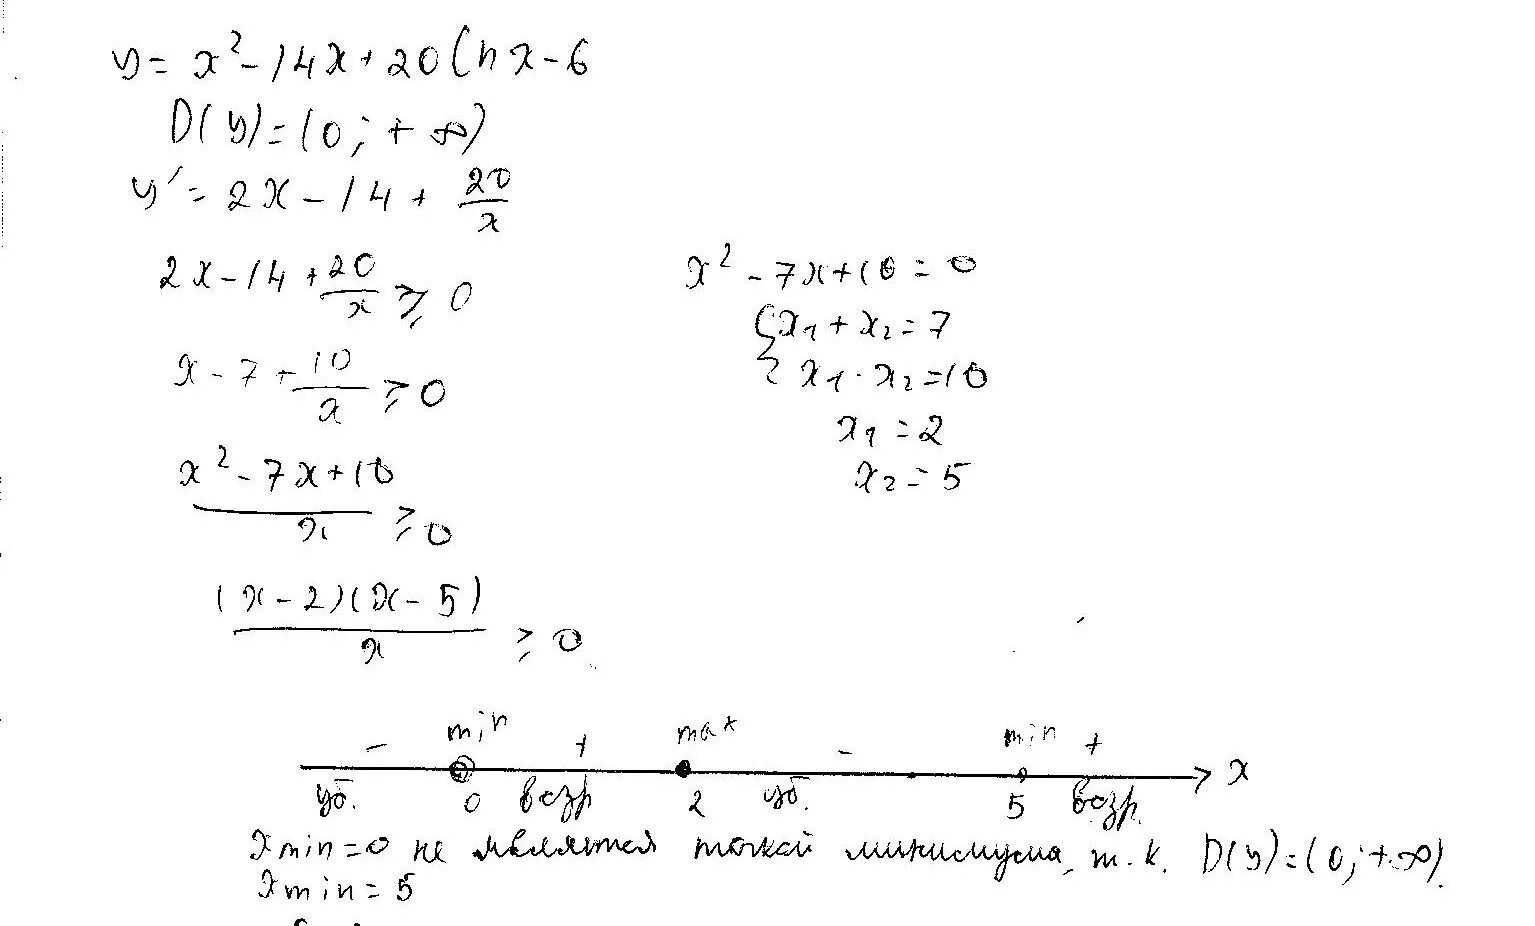 y = x² - 14x + 20 ln x - 6
D(y) = (0; + ∞)
y' = 2x - 14 + 20/x
2x - 14 + 20/x ≥ 0
x - 7 + 10/x ≥ 0
(x² - 7x + 10)/x ≥ 0
((x - 2)(x - 5))/x ≥ 0
x² - 7x + 10 = 0
{ x₁ + x₂ = 7
x₁ · x₂ = 10
x₁ = 2
x₂ = 5
- min + max - min +
x
уб. 0 возр 2 уб. 5 возр.
x min = 0 не является точкой минимума, т.к. D(y) = (0; + ∞).
x min = 5